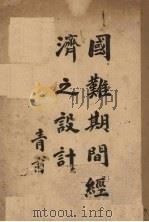 國難期間經
濟之設計
青萍